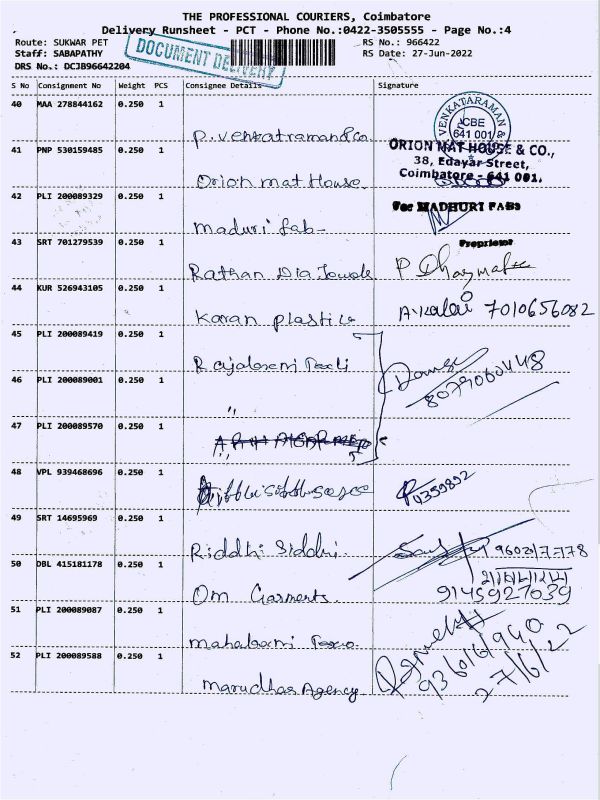 THE PROFESSIONAL COURIERS, Coimbatore
Delivery Runsheet - PCT - Phone No.:0422-3505555 - Page No.:4
Route: SUKWAR PET
RS No.: 966422
Staff: SABAPATHY
RS Date: 27-Jun-2022
DRS No.: DCJB96642204
DOCUMENT DELIVERY
S No Consignment No Weight PCS Consignee Details Signature
40 MAA 278844162 0.250 1
P. Venkatramand co
VENKATARAMAN &
CBE
641 001
41 PNP 530159485 0.250 1
Orion mat House
ORION MAT HOUSE & CO.,
38, Edayar Street,
Coimbatore - 641 001.
42 PLI 200089329 0.250 1
maduri fab-
For MADHURI FABS
Proprietor
43 SRT 701279539 0.250 1
Rathan Dia Jewels
44 KUR 526943105 0.250 1
Karan plastics
A.Kalai 7010656082
45 PLI 200089419 0.250 1
46 PLI 200089001 0.250 1
"
47 PLI 200089570 0.250 1
48 VPL 939468696 0.250 1
49 SRT 14695969 0.250 1
Riddhi Siddhi.
50 DBL 415181178 0.250 1
Om Garments.
9145927039
51 PLI 200089087 0.250 1
52 PLI 200089588 0.250 1
Marudhar Agency
27/6/22